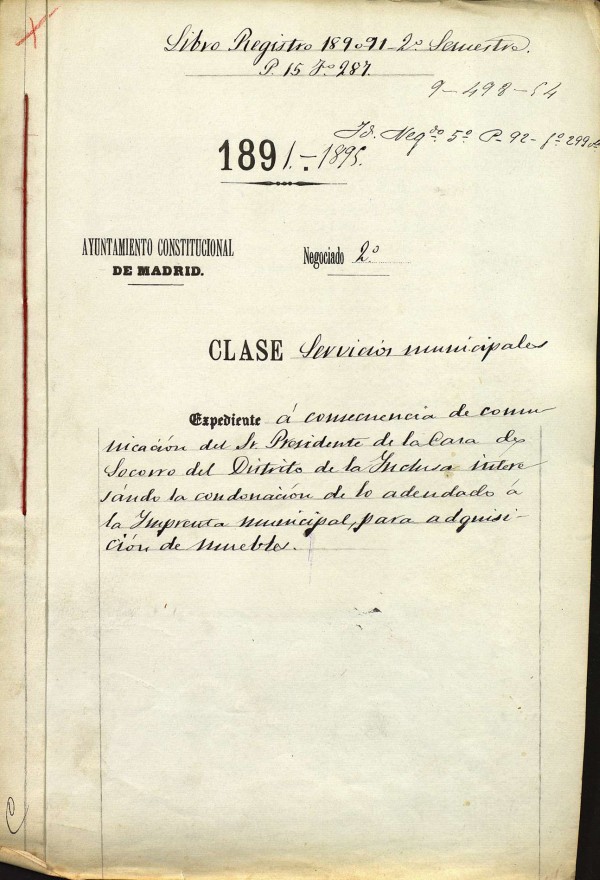 Libro Registro 1890-91-2º Semestre.
P. 15 Fº 287.
9-498-54
Id. Negdo 5º P-92-fº 299
1891.-1895.
AYUNTAMIENTO CONSTITUCIONAL
DE MADRID.
Negociado 2º
CLASE Servicios municipales
Expediente á consecuencia de comu-
nicación del Sr. Presidente de la Casa de
Socorro del Distrito de la Inclusa intere-
sándo la condonación de lo adeudado á
la Imprenta municipal, para adquisi-
ción de muebles.